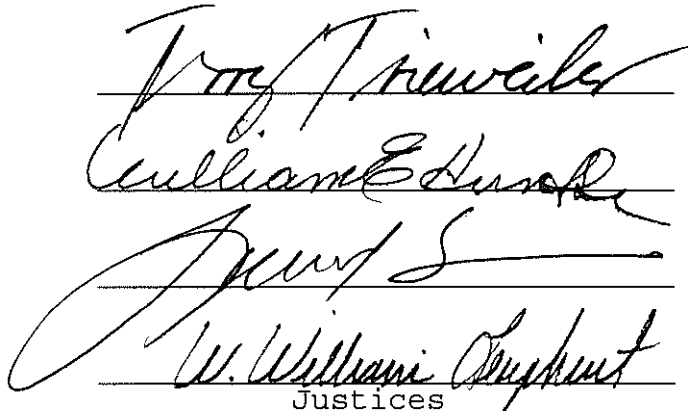 Terry Trieweiler
William E Hunt Sr
W. William Leaphart
Justices